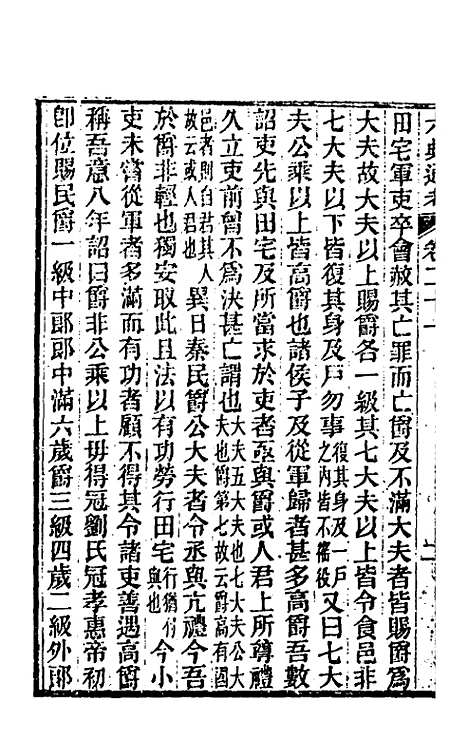 六典通考 卷二十一
田宅軍吏卒會赦其亡罪而亡爵及不滿大夫者皆賜爵爲
大夫故大夫以上賜爵各一級其七大夫以上皆令食邑非
七大夫以下皆復其身及戸勿事復其身及一戸之内皆不徭役又曰七大
夫公乘以上皆高爵也諸侯子及從軍歸者甚多高爵吾數
詔吏先與田宅及所當求於吏者亟與爵或人君上所尊禮
久立吏前曾不爲決甚亡謂也大夫五大夫也七大夫公大夫也爵第七故云爵高有國
邑者則自君其人故云或人君也異日秦民爵公大夫者令丞與亢禮今吾
於爵非輕也獨安取此且法以有功勞行田宅行猶付與也今小
吏未嘗從軍者多滿而有功者顧不得其令諸吏善遇高爵
稱吾意八年詔曰爵非公乘以上毋得冠劉氏冠孝惠帝初
卽位賜民爵一級中郎郎中滿六歲爵三級四歲二級外郎